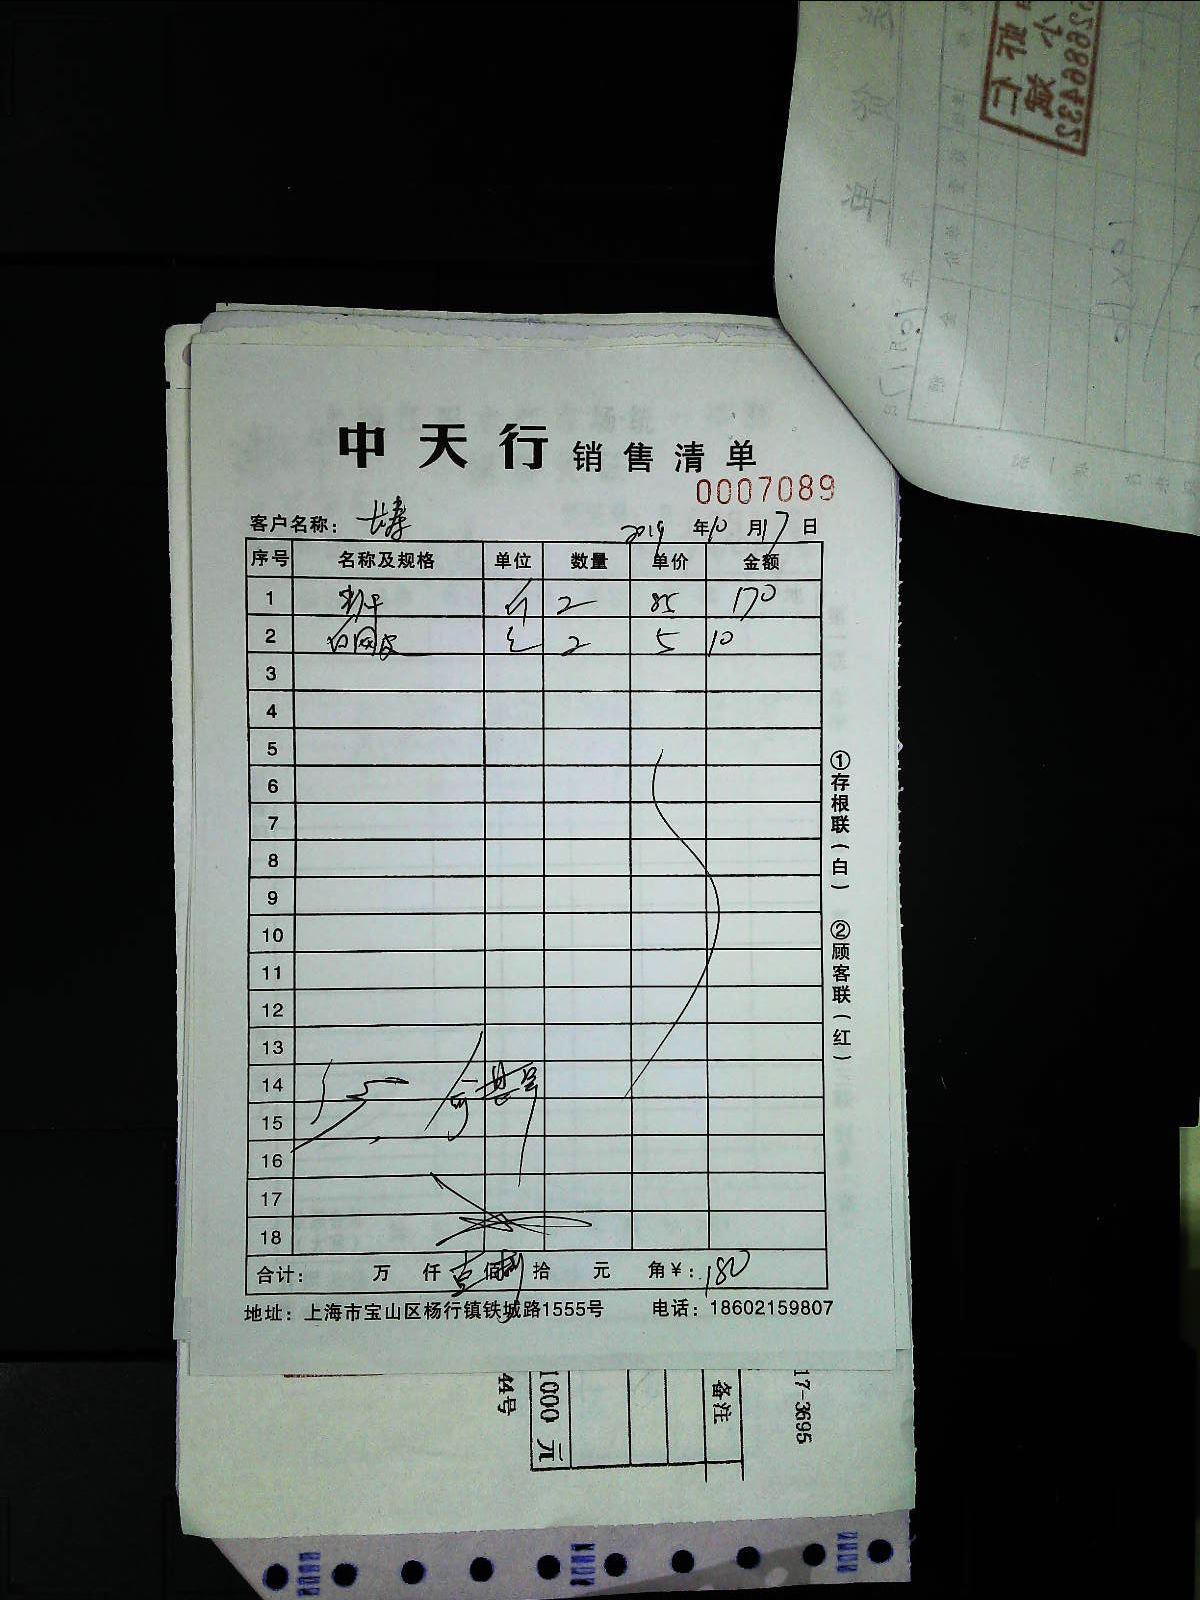 中天行销售清单
0007089
客户名称：长寿 2019年10月17日
序号 名称及规格 单位 数量 单价 金额
1 斤 2 85 170
2 白网皮 包 2 5 10
3
4
5
6
7
8
9
10
11
12
13
14
15
16
17
18
合计： 万 仟 壹 佰 捌 拾 元 角￥：180
地址：上海市宝山区杨行镇铁城路1555号 电话：18602159807
①存根联（白） ②顾客联（红）
44号
1000 元
备注
17-3695